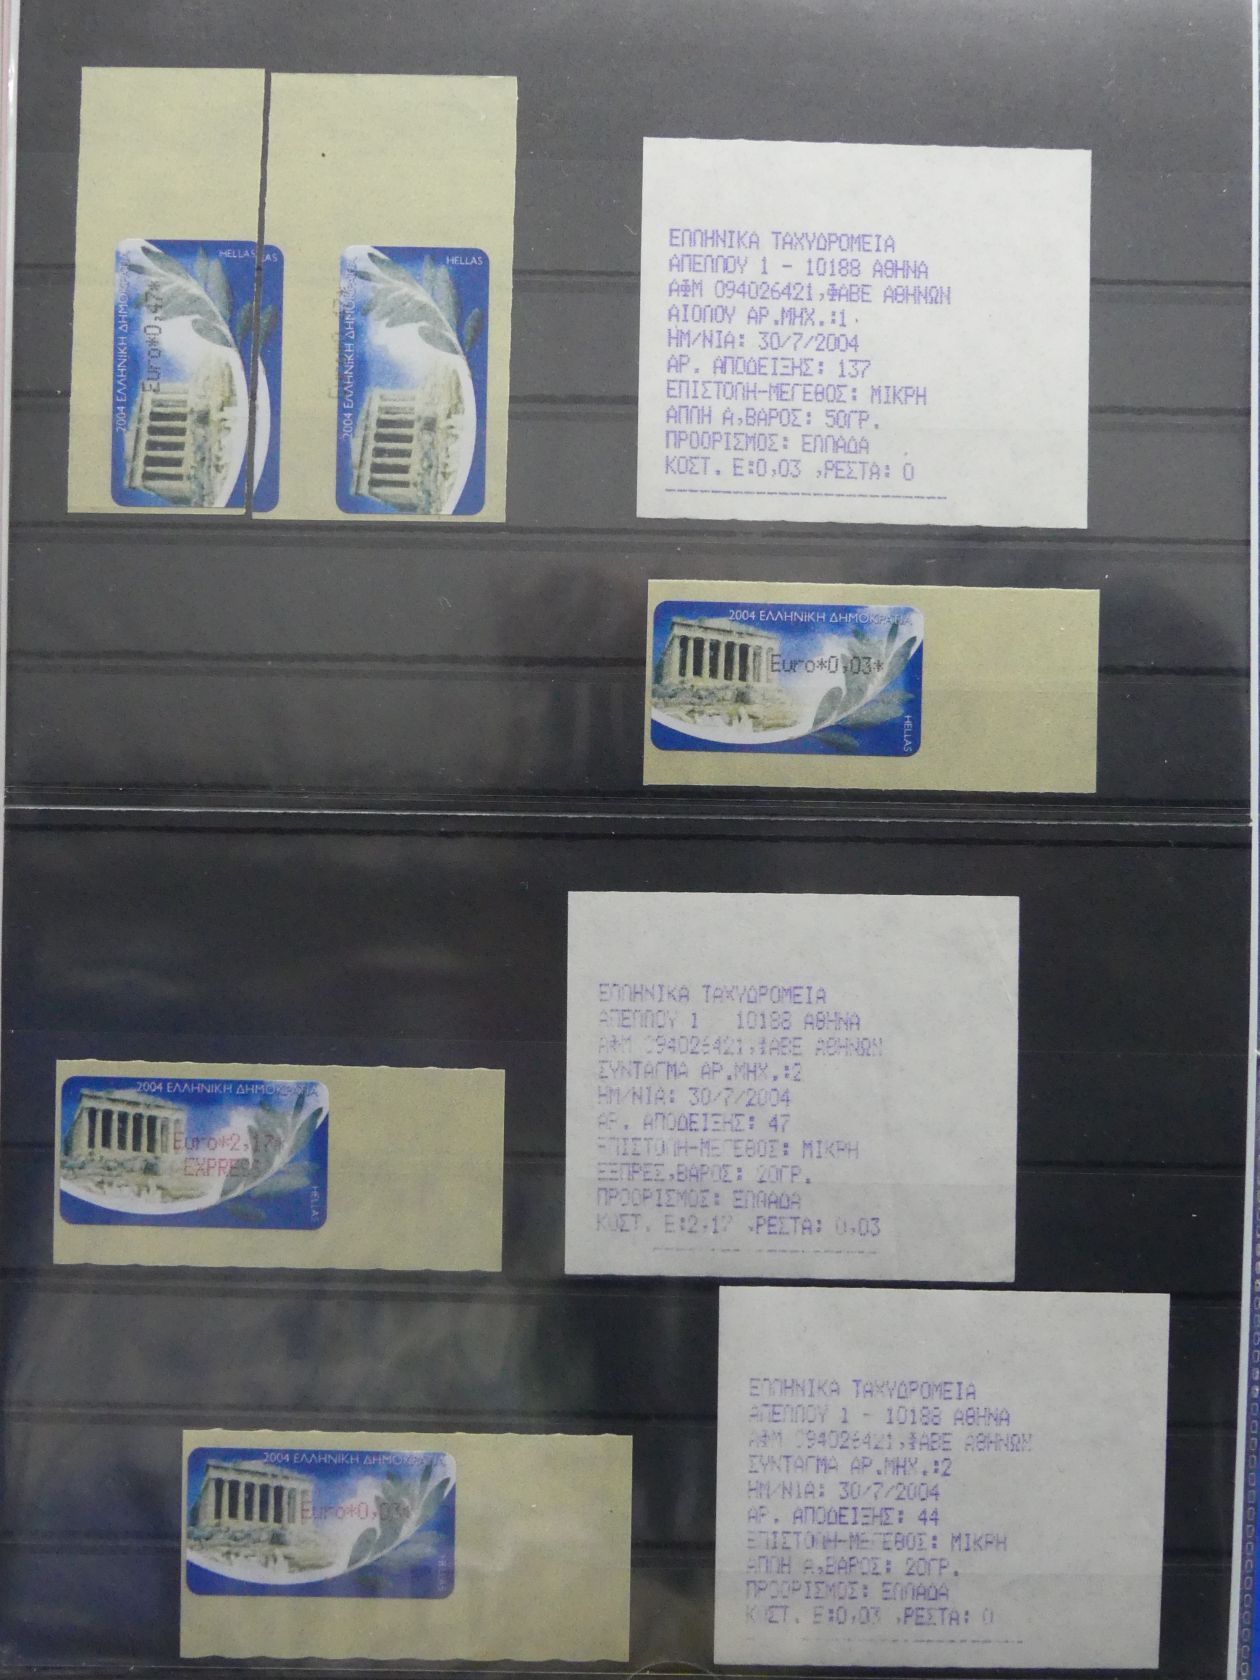 2004 ΕΛΛΗΝΙΚΗ ΔΗΜΟΚΡΑΤΙΑ
Euro*0,47*
HELLAS
2004 ΕΛΛΗΝΙΚΗ ΔΗΜΟΚΡΑΤΙΑ
HELLAS
ΕΛΛΗΝΙΚΑ ΤΑΧΥΔΡΟΜΕΙΑ
ΑΠΕΛΛΟΥ 1 - 10188 ΑΘΗΝΑ
ΑΦΜ 094026421,ΦΑΒΕ ΑΘΗΝΩΝ
ΑΙΟΛΟΥ ΑΡ.ΜΗΧ.:1
ΗΜ/ΝΙΑ: 30/7/2004
ΑΡ. ΑΠΟΔΕΙΞΗΣ: 137
ΕΠΙΣΤΟΛΗ-ΜΕΓΕΘΟΣ: ΜΙΚΡΗ
ΑΠΛΗ Α,ΒΑΡΟΣ: 50ΓΡ.
ΠΡΟΟΡΙΣΜΟΣ: ΕΛΛΑΔΑ
ΚΟΣΤ. Ε:0,03 ,ΡΕΣΤΑ: 0
2004 ΕΛΛΗΝΙΚΗ ΔΗΜΟΚΡΑΤΙΑ
Euro*0,03*
HELLAS
2004 ΕΛΛΗΝΙΚΗ ΔΗΜΟΚΡΑΤΙΑ
Euro*2,17*
EXPRESS
HELLAS
ΕΛΛΗΝΙΚΑ ΤΑΧΥΔΡΟΜΕΙΑ
ΑΠΕΛΛΟΥ 1 10188 ΑΘΗΝΑ
ΑΦΜ 094026421,ΦΑΒΕ ΑΘΗΝΩΝ
ΣΥΝΤΑΓΜΑ ΑΡ.ΜΗΧ.:2
ΗΜ/ΝΙΑ: 30/7/2004
ΑΡ. ΑΠΟΔΕΙΞΗΣ: 47
ΕΠΙΣΤΟΛΗ-ΜΕΓΕΘΟΣ: ΜΙΚΡΗ
ΕΞΠΡΕΣ,ΒΑΡΟΣ: 20ΓΡ.
ΠΡΟΟΡΙΣΜΟΣ: ΕΛΛΑΔΑ
ΚΟΣΤ. Ε:2,17 ,ΡΕΣΤΑ: 0,03
2004 ΕΛΛΗΝΙΚΗ ΔΗΜΟΚΡΑΤΙΑ
Euro*0,03*
HELLAS
ΕΛΛΗΝΙΚΑ ΤΑΧΥΔΡΟΜΕΙΑ
ΑΠΕΛΛΟΥ 1 - 10188 ΑΘΗΝΑ
ΑΦΜ 094026421,ΦΑΒΕ ΑΘΗΝΩΝ
ΣΥΝΤΑΓΜΑ ΑΡ.ΜΗΧ.:2
ΗΜ/ΝΙΑ: 30/7/2004
ΑΡ. ΑΠΟΔΕΙΞΗΣ: 44
ΕΠΙΣΤΟΛΗ-ΜΕΓΕΘΟΣ: ΜΙΚΡΗ
ΑΠΛΗ Α,ΒΑΡΟΣ: 20ΓΡ.
ΠΡΟΟΡΙΣΜΟΣ: ΕΛΛΑΔΑ
ΚΟΣΤ. Ε:0,03 ,ΡΕΣΤΑ: 0